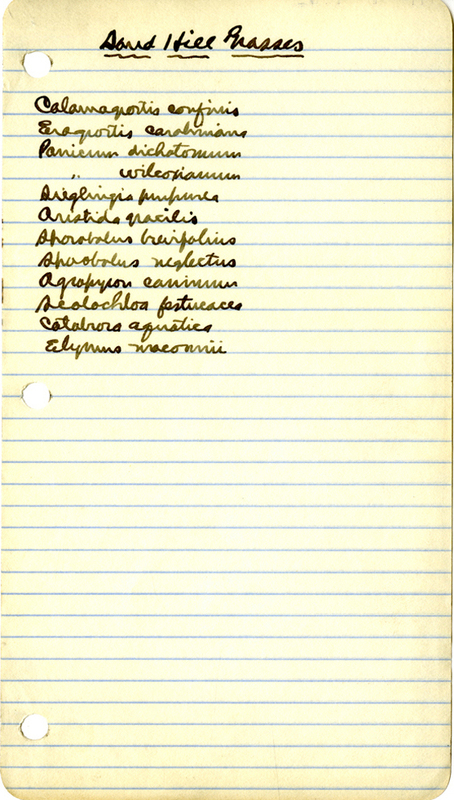 Sand Hill Grasses
Calamagrostis confinis
Eragrostis caroliniana
Panicum dichotomum
" wilcoxianum
Sieglingia purpurea
Aristida gracilis
Sporobolus brevifolius
Sporobolus neglectus
Agropyron caninum
Scolochloa festucacea
Catabrosa aquatica
Elymus macounii